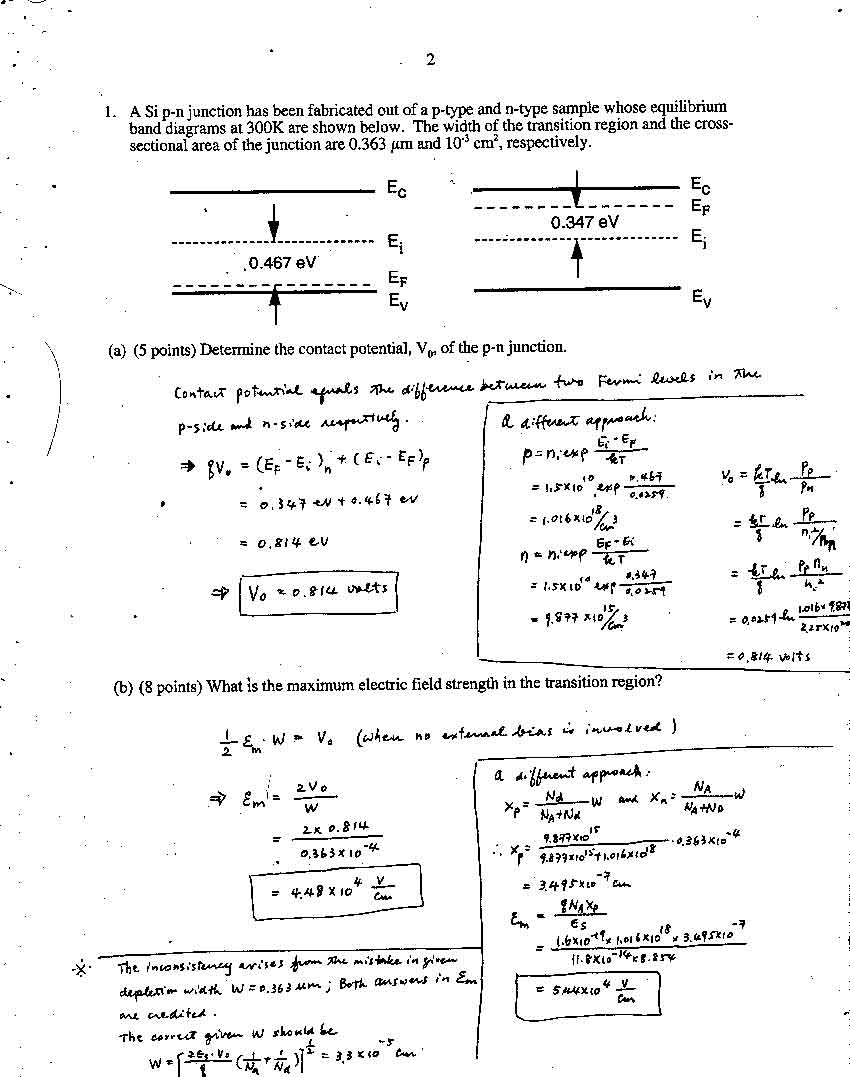 2
1. A Si p-n junction has been fabricated out of a p-type and n-type sample whose equilibrium
band diagrams at 300K are shown below. The width of the transition region and the cross-
sectional area of the junction are 0.363 μm and 10⁻³ cm², respectively.
E_C
E_i
0.467 eV
E_F
E_V
E_C
E_F
0.347 eV
E_i
E_V
(a) (5 points) Determine the contact potential, V₀, of the p-n junction.
Contact potential equals the difference between two Fermi levels in the
p-side and n-side respectively.
⇒ qV₀ = (E_F - E_i)_n + (E_i - E_F)_p
= 0.347 eV + 0.467 eV
= 0.814 eV
⇒ V₀ = 0.814 volts
A different approach:
p = n_i exp (E_i - E_F)/kT
= 1.5×10¹⁰ exp 0.467/0.0259
= 1.016×10¹⁸/cm³
n = n_i exp (E_F - E_i)/kT
= 1.5×10¹⁰ exp 0.347/0.0259
= 9.877×10¹⁵/cm³
V₀ = kT/q ln P_p/P_n
= kT/q ln P_p/(n_i²/n_n)
= kT/q ln P_p n_n/n_i²
= 0.0259 ln 1.016×9.877/2.25×10²⁰
= 0.814 volts
(b) (8 points) What is the maximum electric field strength in the transition region?
1/2 ℰ_m · W = V₀ (when no external bias is involved)
⇒ ℰ_m = 2V₀/W
= 2×0.814/0.363×10⁻⁴
= 4.48×10⁴ V/cm
A different approach:
x_p = N_d/(N_A+N_d) W and x_n = N_A/(N_A+N_D) W
∴ x_p = 9.877×10¹⁵/(9.877×10¹⁵+1.016×10¹⁸) · 0.363×10⁻⁴
= 3.495×10⁻⁷ cm
ℰ_m = qN_A x_p/ε_s
= 1.6×10⁻¹⁹ × 1.016×10¹⁸ × 3.495×10⁻⁷/11.8×10⁻¹⁴×8.854
= 5.44×10⁴ V/cm
※ The inconsistency arises from the mistake in given
depletion width W = 0.363 μm ; Both answers in ℰ_m
are credited.
The correct given W should be
W = [2ε_s·V₀/q (1/N_a + 1/N_d)]^1/2 = 3.3×10⁻⁵ cm.